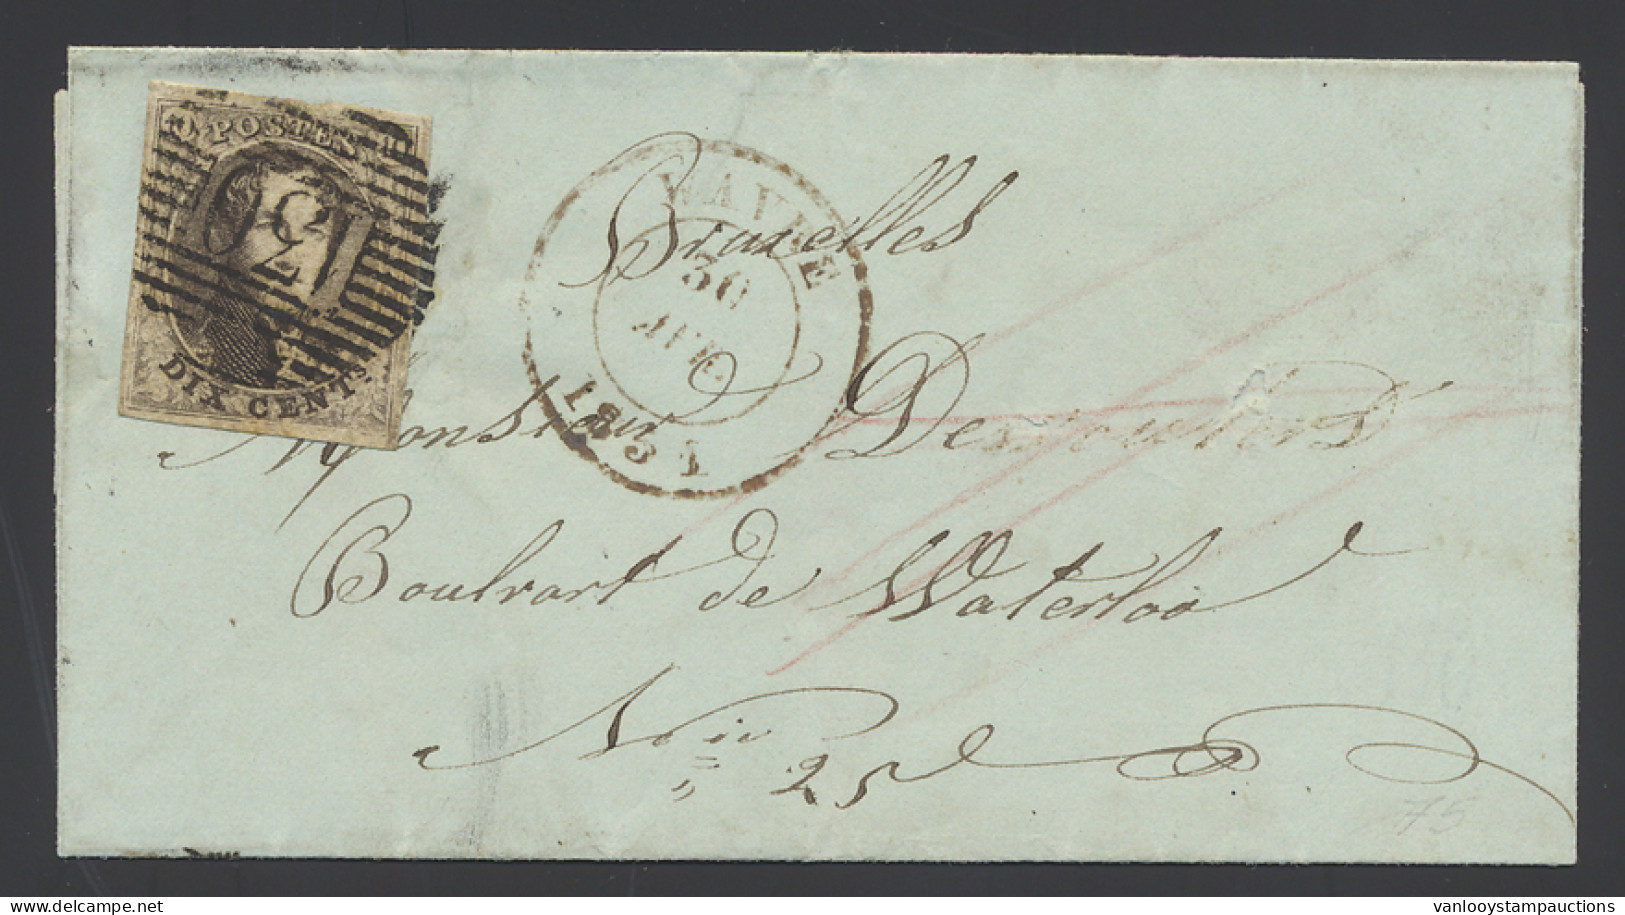 10 POSTES 10
130
DIX CENTS.
WAVRE
30
AVR.
1851
Bruxelles
Monsieur
Boulvart de Waterloo
N° 25
75
www.delcampe.net
vanlooystampauctions